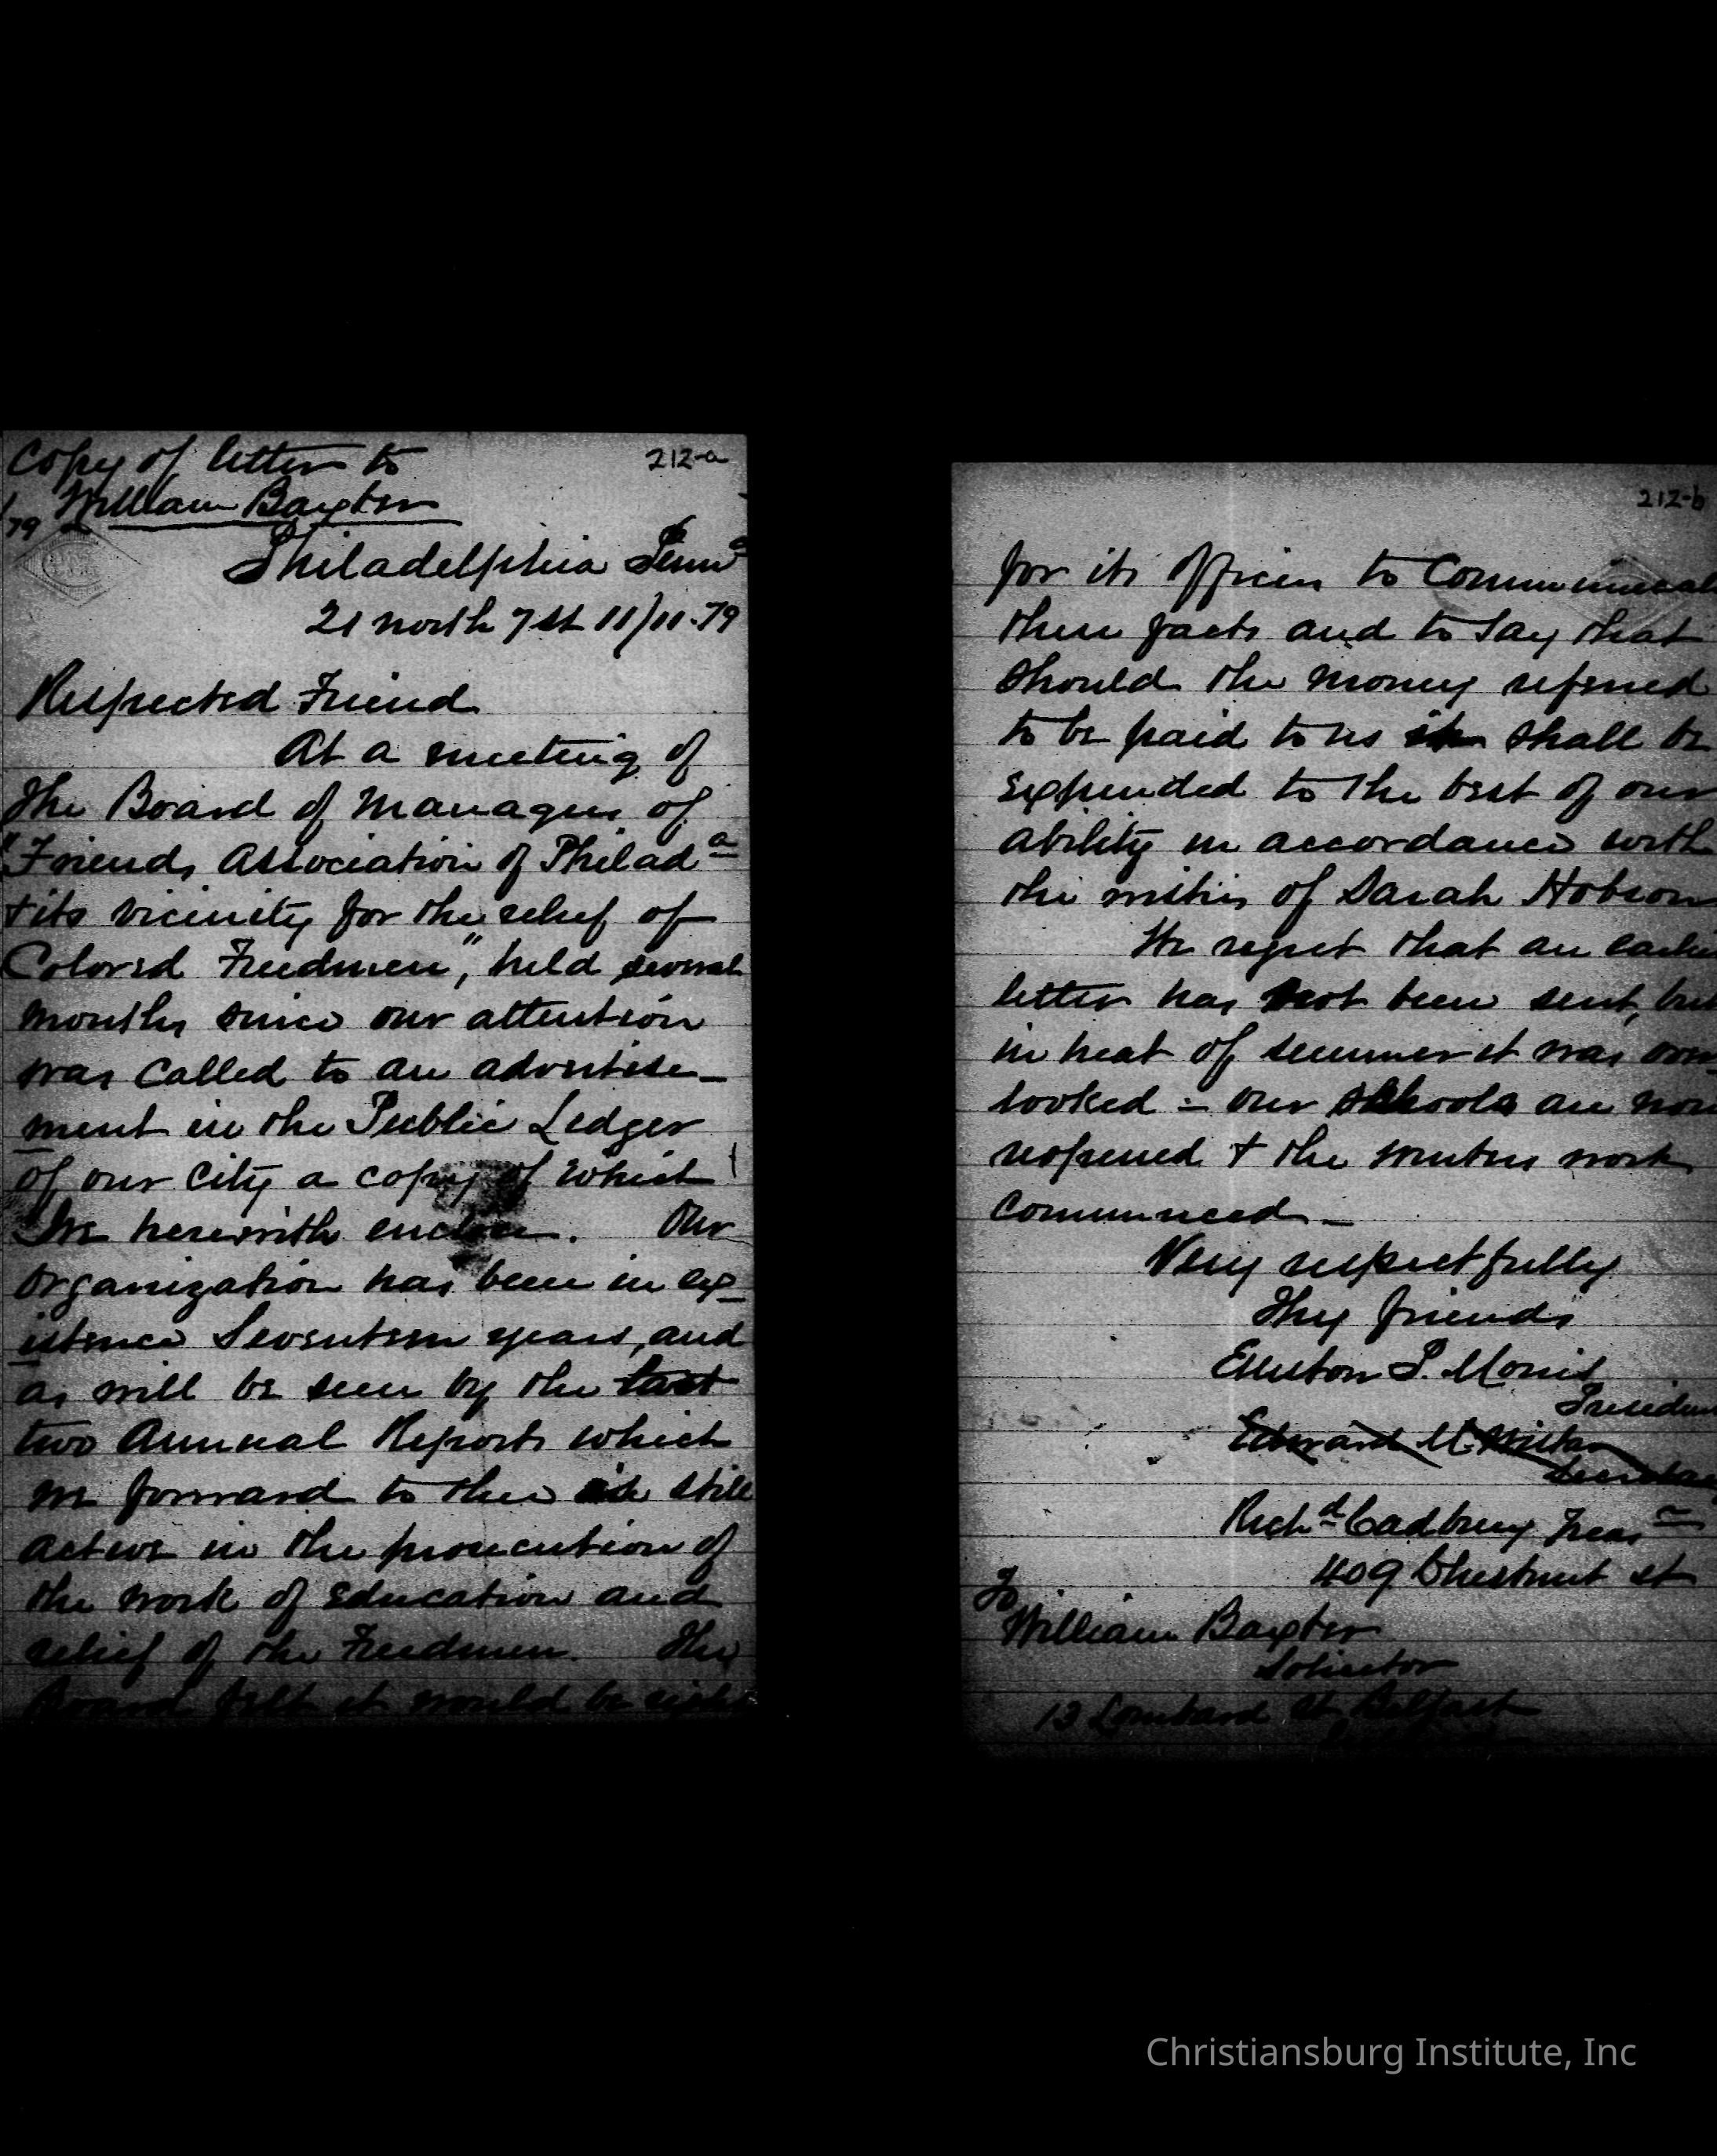 Copy of letter to
212-a
William Baxter
79
Philadelphia Penna
21 north 7 st 11/11.79
Respected Friend
At a meeting of
the Board of Managers of
"Friends Association of Philada
& its vicinity for the relief of
Colored Freedmen", held several
months since our attention
was called to an advertise-
ment in the Public Ledger
of our City a copy of which
we herewith enclose. Our
organization has been in ex-
istence Seventeen years, and
as will be seen by the last
two Annual Reports which
we forward to thee is still
active in the prosecution of
the work of Education and
relief of the Freedmen. The
Board felt it would be right
212-b
for its officers to Communicate
these facts and to say that
should the money referred
to be paid to us it shall be
expended to the best of our
ability in accordance with
the wishes of Sarah Hobson
We regret that an earlier
letter has not been sent, but
in heat of summer it was over
looked - our schools are now
reopened & the winters work
Commenced -
Very respectfully
Thy friends
Elliston P. Morris
President
Edward M. Wistar
Secretary
Richd Cadbury Treas
409 Chestnut st
To
William Baxter
Solicitor
13 Lombard St Belfast
Christiansburg Institute, Inc